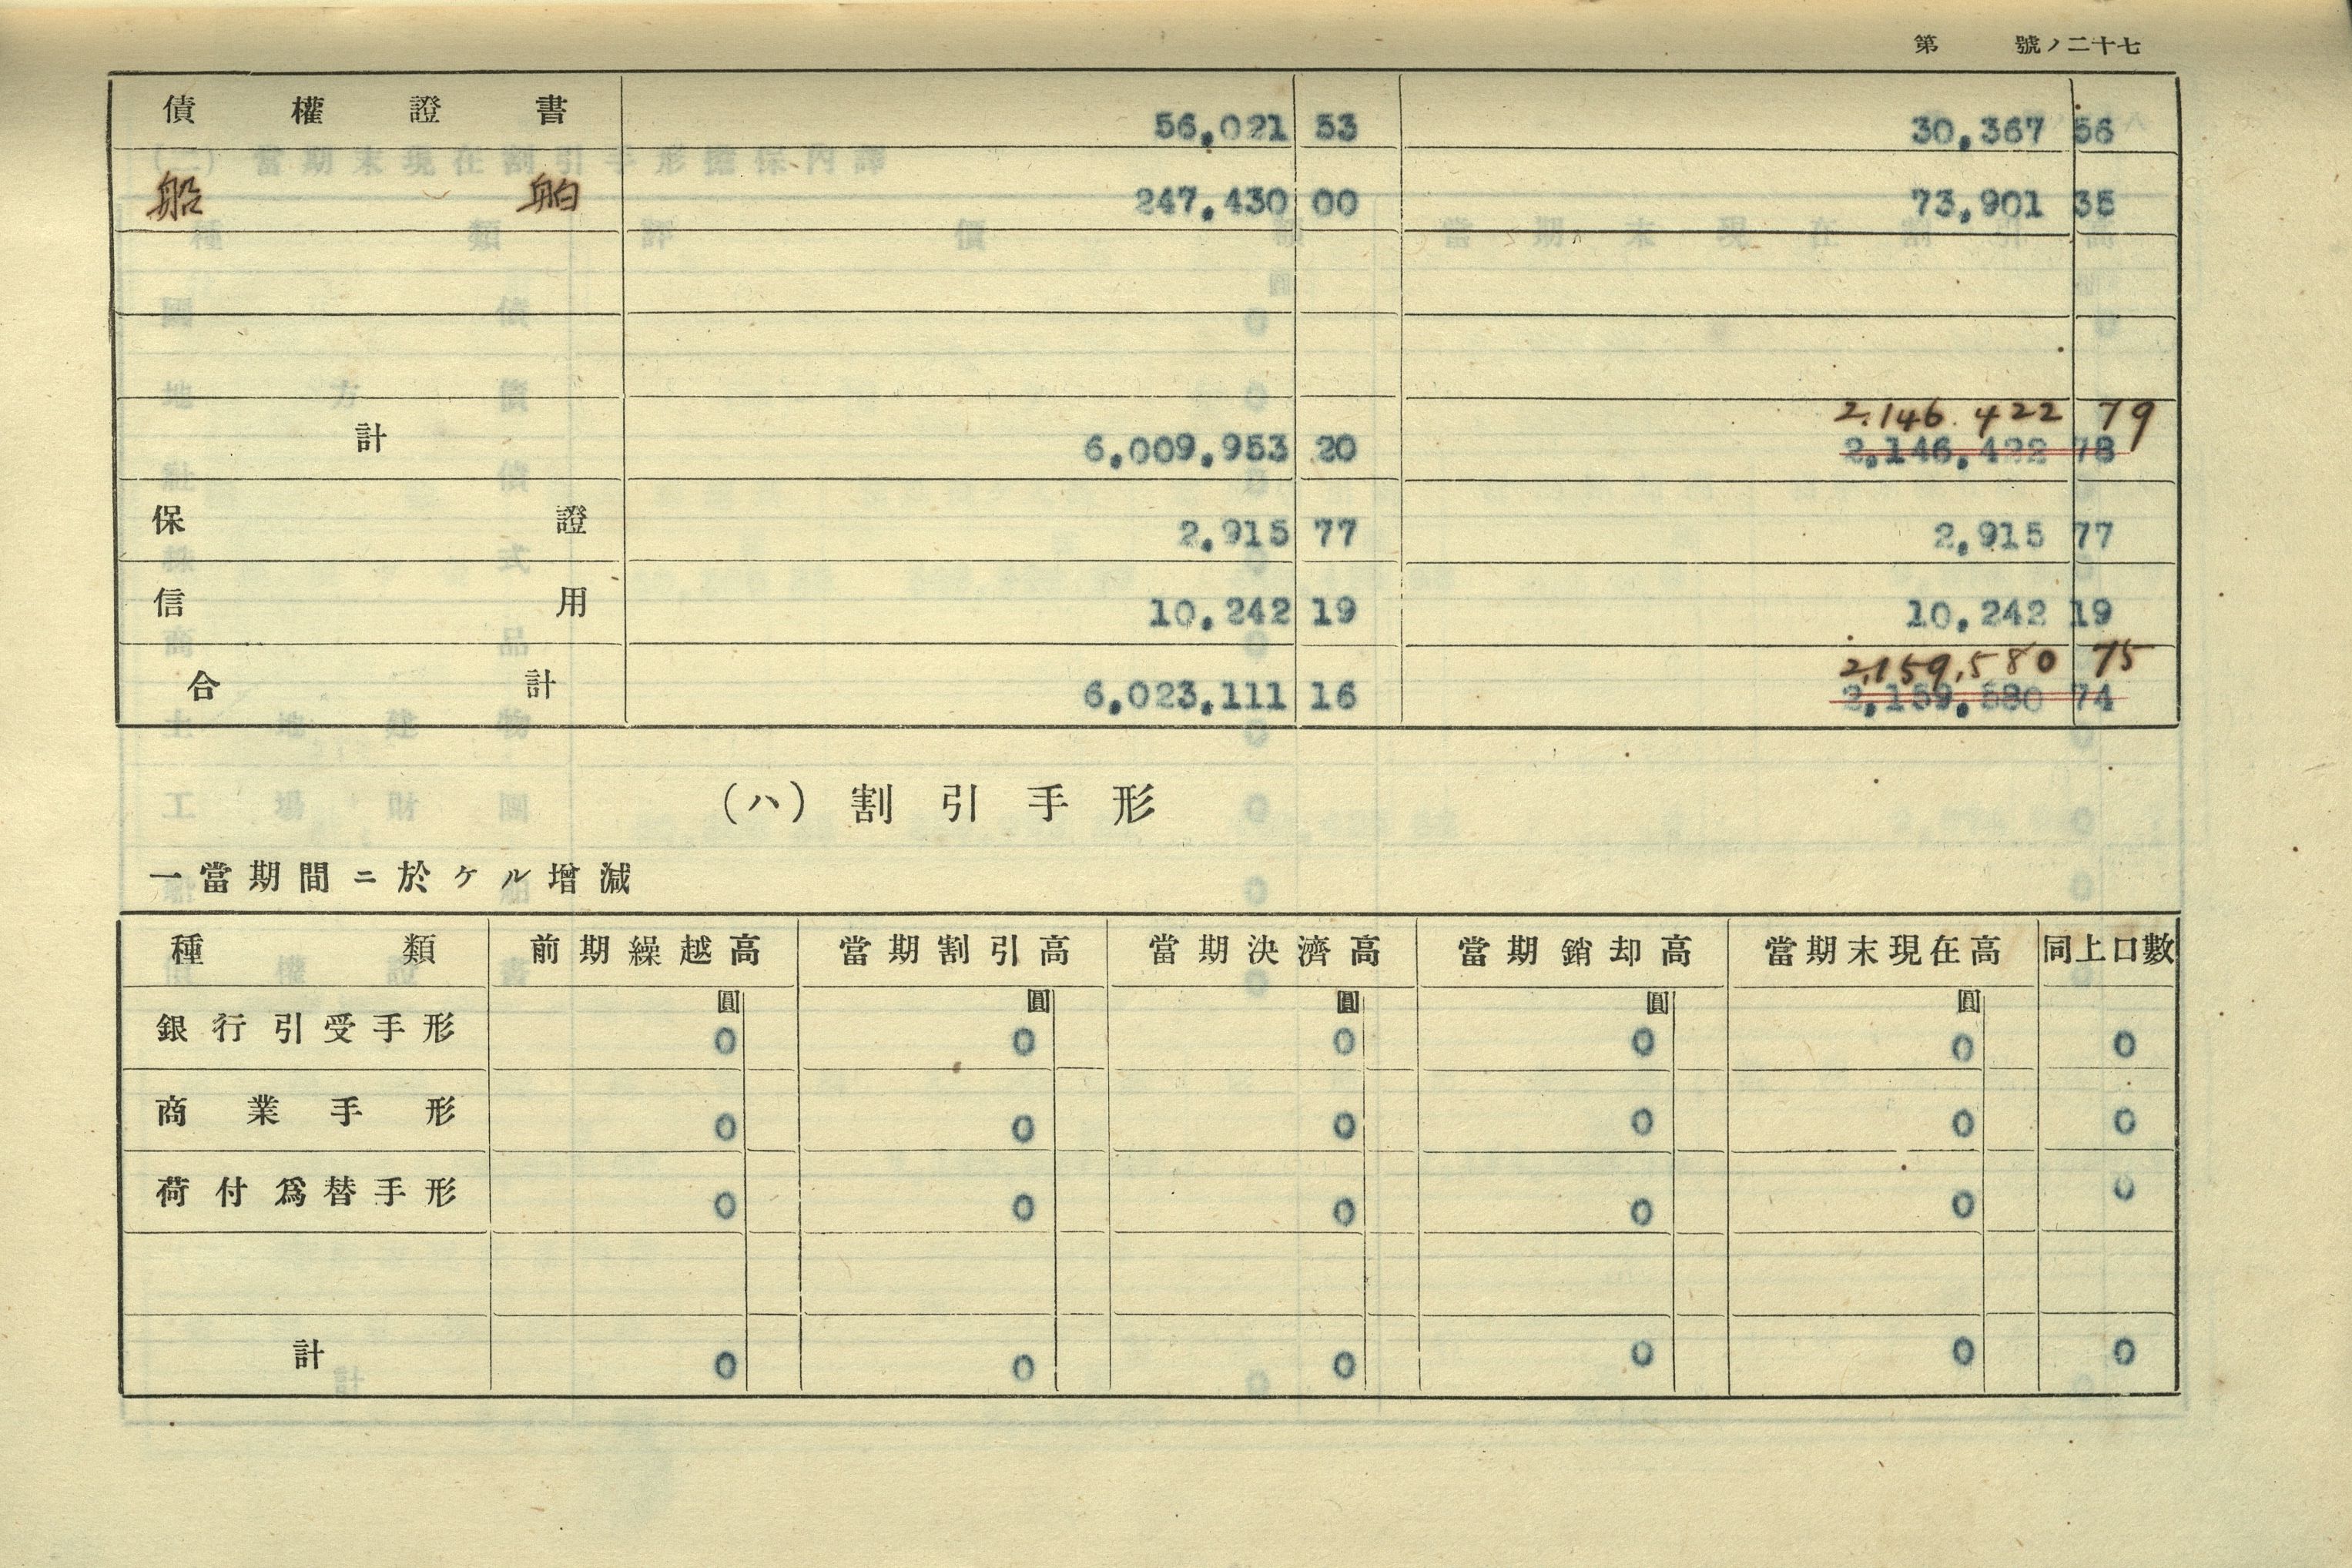 第 號ノ二十七
債權證書 56,021 53 30,367 56
船舶 247,430 00 73,901 35
2,146,422 79
計 6,009,953 20 2,146,422 78
保證 2,915 77 2,915 77
信用 10,242 19 10,242 19
2,159,580 75
合計 6,023,111 16 2,159,580 74
(ハ) 割引手形
一當期間ニ於ケル增減
種類 前期繰越高 當期割引高 當期決濟高 當期銷却高 當期末現在高 同上口數
圓 圓 圓 圓 圓
銀行引受手形 0 0 0 0 0 0
商業手形 0 0 0 0 0 0
荷付爲替手形 0 0 0 0 0 0
計 0 0 0 0 0 0